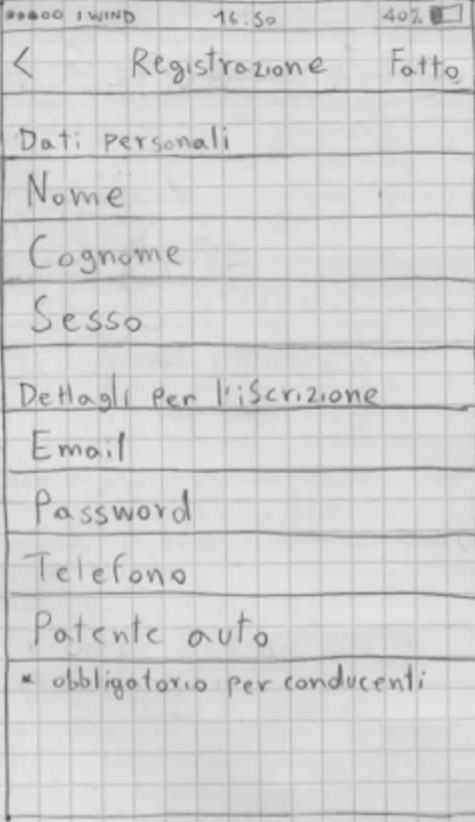 I WIND 16:50 40%
< Registrazione Fatto
Dati personali
Nome
Cognome
Sesso
Dettagli per l'iscrizione
Email
Password
Telefono
Patente auto
* obbligatorio per conducenti